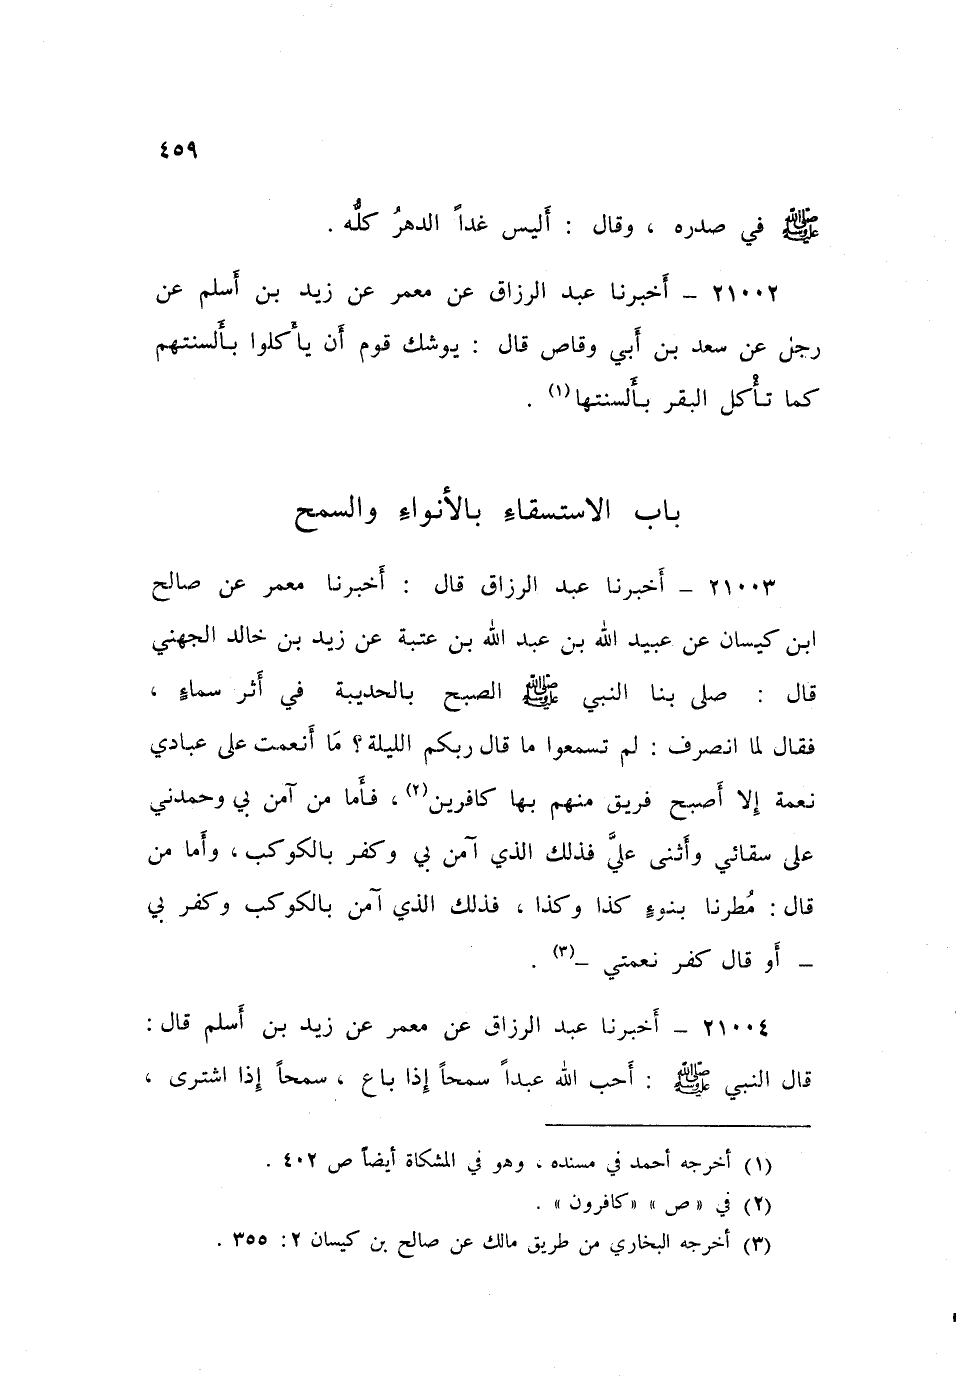 ٤٥٩
ﷺ في صدره ، وقال : أليس غداً الدهرُ كلُّه .
٢١٠٠٢ – أخبرنا عبد الرزاق عن معمر عن زيد بن أسلم عن
رجل عن سعد بن أبي وقاص قال : يوشك قوم أن يأكلوا بألسنتهم
كما تأكل البقر بألسنتها(١) .
باب الاستسقاء بالأنواء والسمح
٢١٠٠٣ – أخبرنا عبد الرزاق قال : أخبرنا معمر عن صالح
ابن كيسان عن عبيد الله بن عبد الله بن عتبة عن زيد بن خالد الجهني
قال : صلى بنا النبي ﷺ الصبح بالحديبة في أثر سماءٍ ،
فقال لما انصرف : لم تسمعوا ما قال ربكم الليلة؟ مَا أنعمت على عبادي
نعمة إلا أصبح فريق منهم بها كافرين(٢) ، فأما من آمن بي وحمدني
على سقائي وأثنى عليَّ فذلك الذي آمن بي وكفر بالكوكب ، وأما من
قال : مُطرنا بنوءٍ كذا وكذا ، فذلك الذي آمن بالكوكب وكفر بي
– أو قال كفر نعمتي –(٣) .
٢١٠٠٤ – أخبرنا عبد الرزاق عن معمر عن زيد بن أسلم قال :
قال النبي ﷺ : أحب الله عبداً سمحاً إذا باع ، سمحاً إذا اشترى ،
(١) أخرجه أحمد في مسنده ، وهو في المشكاة أيضاً ص ٤٠٢ .
(٢) في « ص » « كافرون » .
(٣) أخرجه البخاري من طريق مالك عن صالح بن كيسان ٢ : ٣٥٥ .